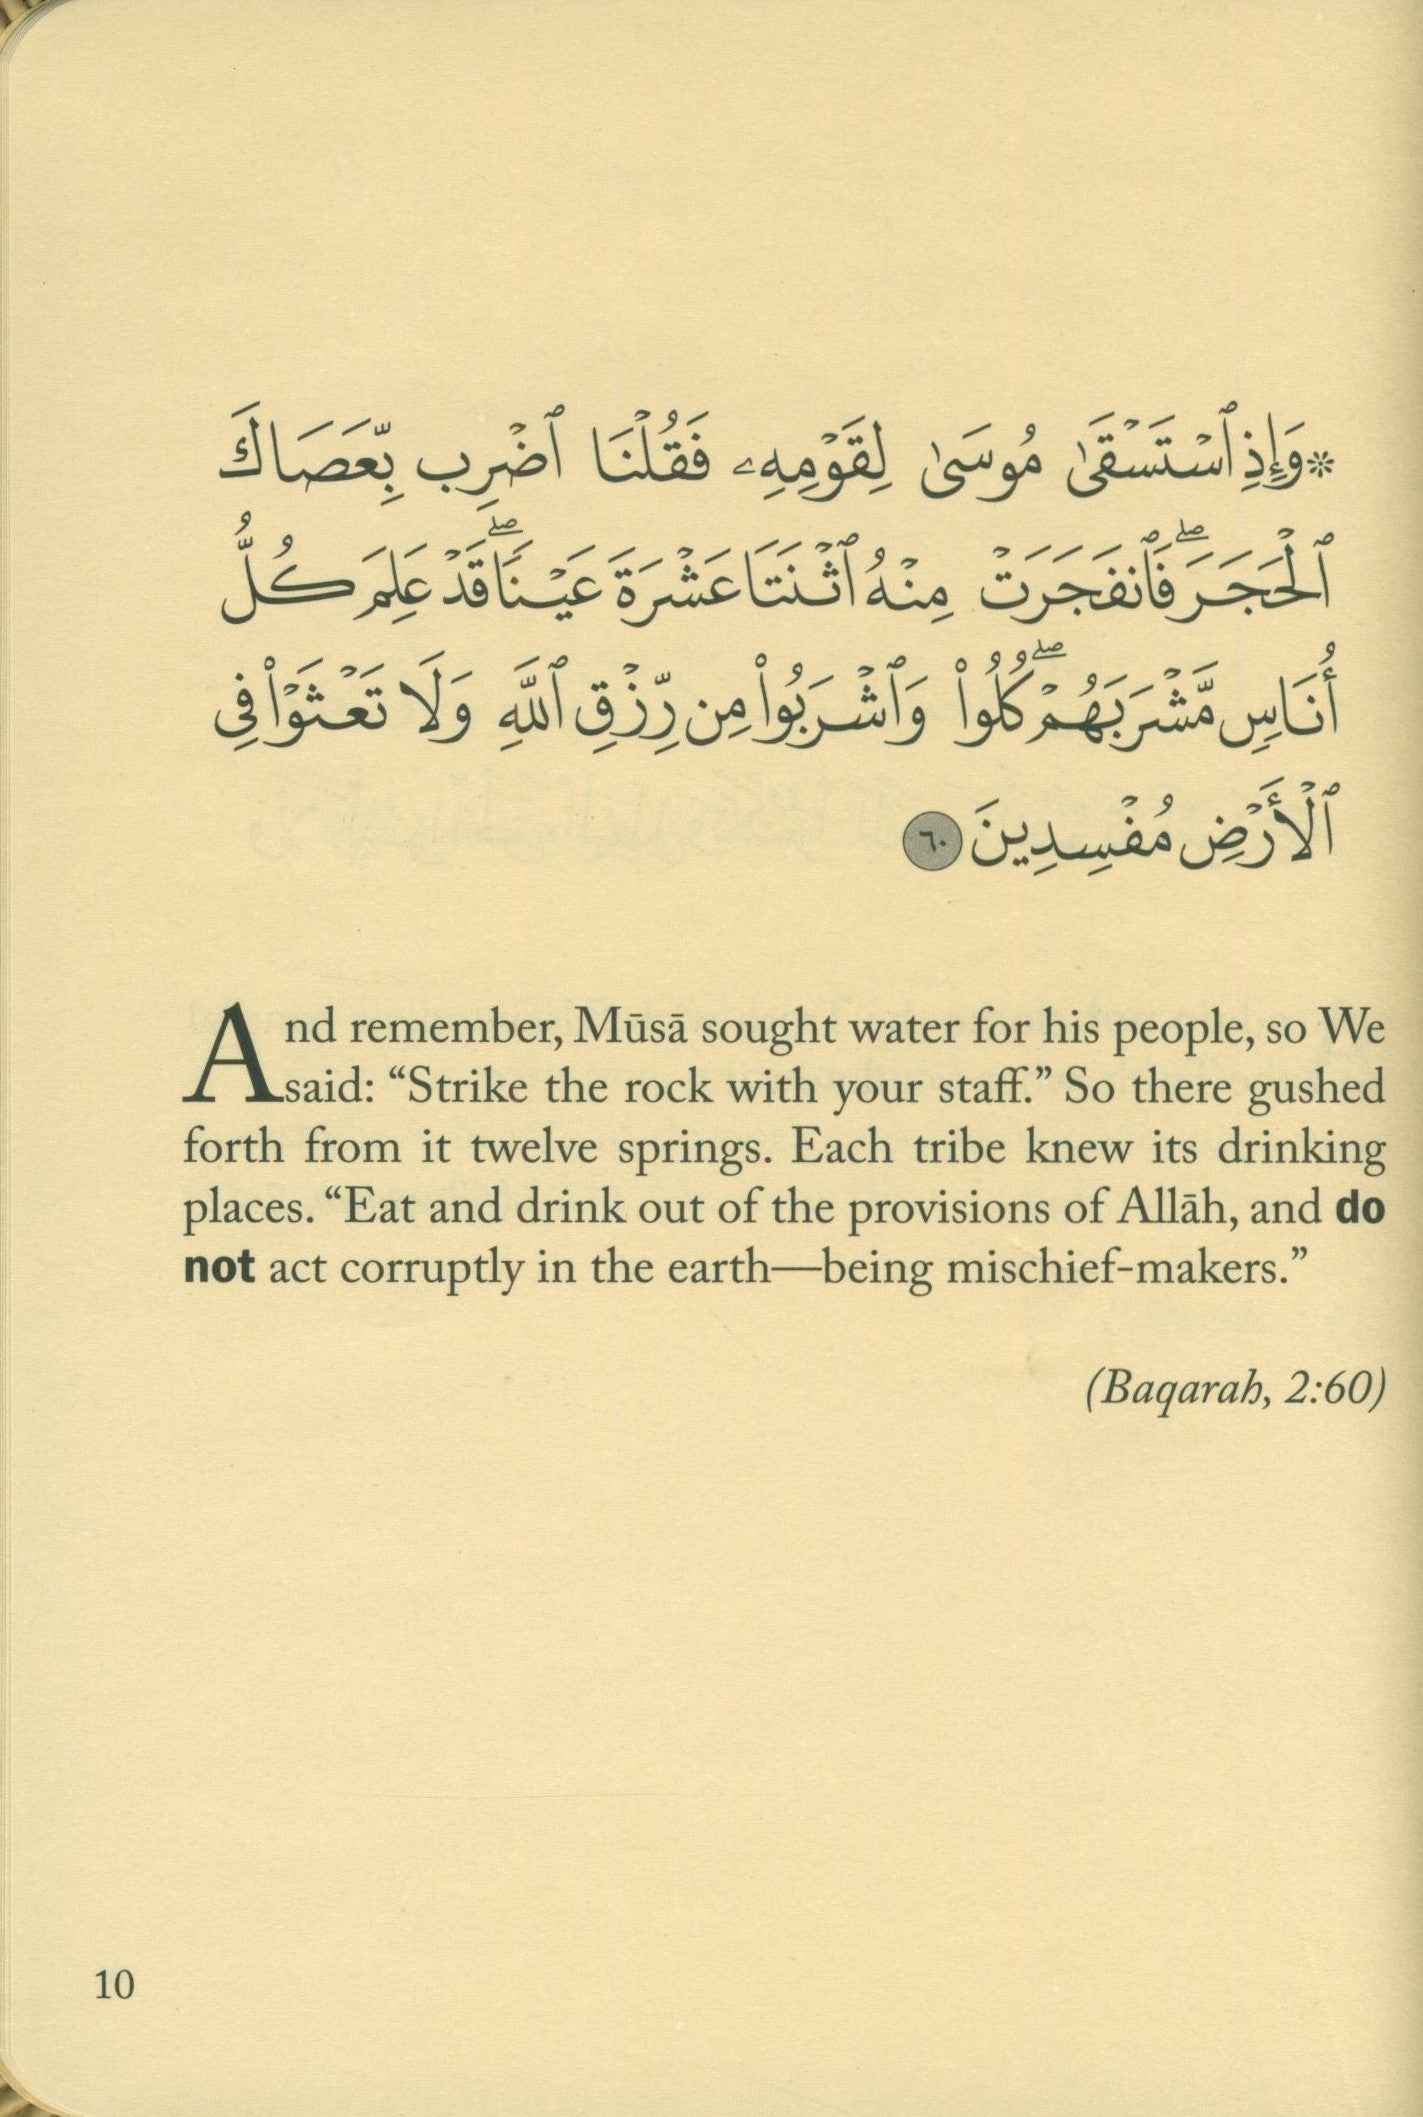 ۞وَإِذِ ٱسْتَسْقَىٰ مُوسَىٰ لِقَوْمِهِۦ فَقُلْنَا ٱضْرِب بِّعَصَاكَ
ٱلْحَجَرَۖ فَٱنفَجَرَتْ مِنْهُ ٱثْنَتَا عَشْرَةَ عَيْنًاۖ قَدْ عَلِمَ كُلُّ
أُنَاسٍ مَّشْرَبَهُمْۖ كُلُوا۟ وَٱشْرَبُوا۟ مِن رِّزْقِ ٱللَّهِ وَلَا تَعْثَوْا۟ فِى
ٱلْأَرْضِ مُفْسِدِينَ ٦٠
And remember, Mūsā sought water for his people, so We
said: “Strike the rock with your staff.” So there gushed
forth from it twelve springs. Each tribe knew its drinking
places. “Eat and drink out of the provisions of Allāh, and do
not act corruptly in the earth—being mischief-makers.”
(Baqarah, 2:60)
10